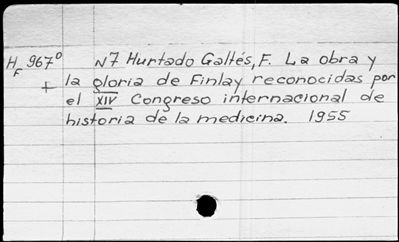 HF 967° N7 Hurtado Galtés, F. La obra y
+ la gloria de Finlay reconocidas por
el XIV Congreso internacional de
historia de la medicina. 1955